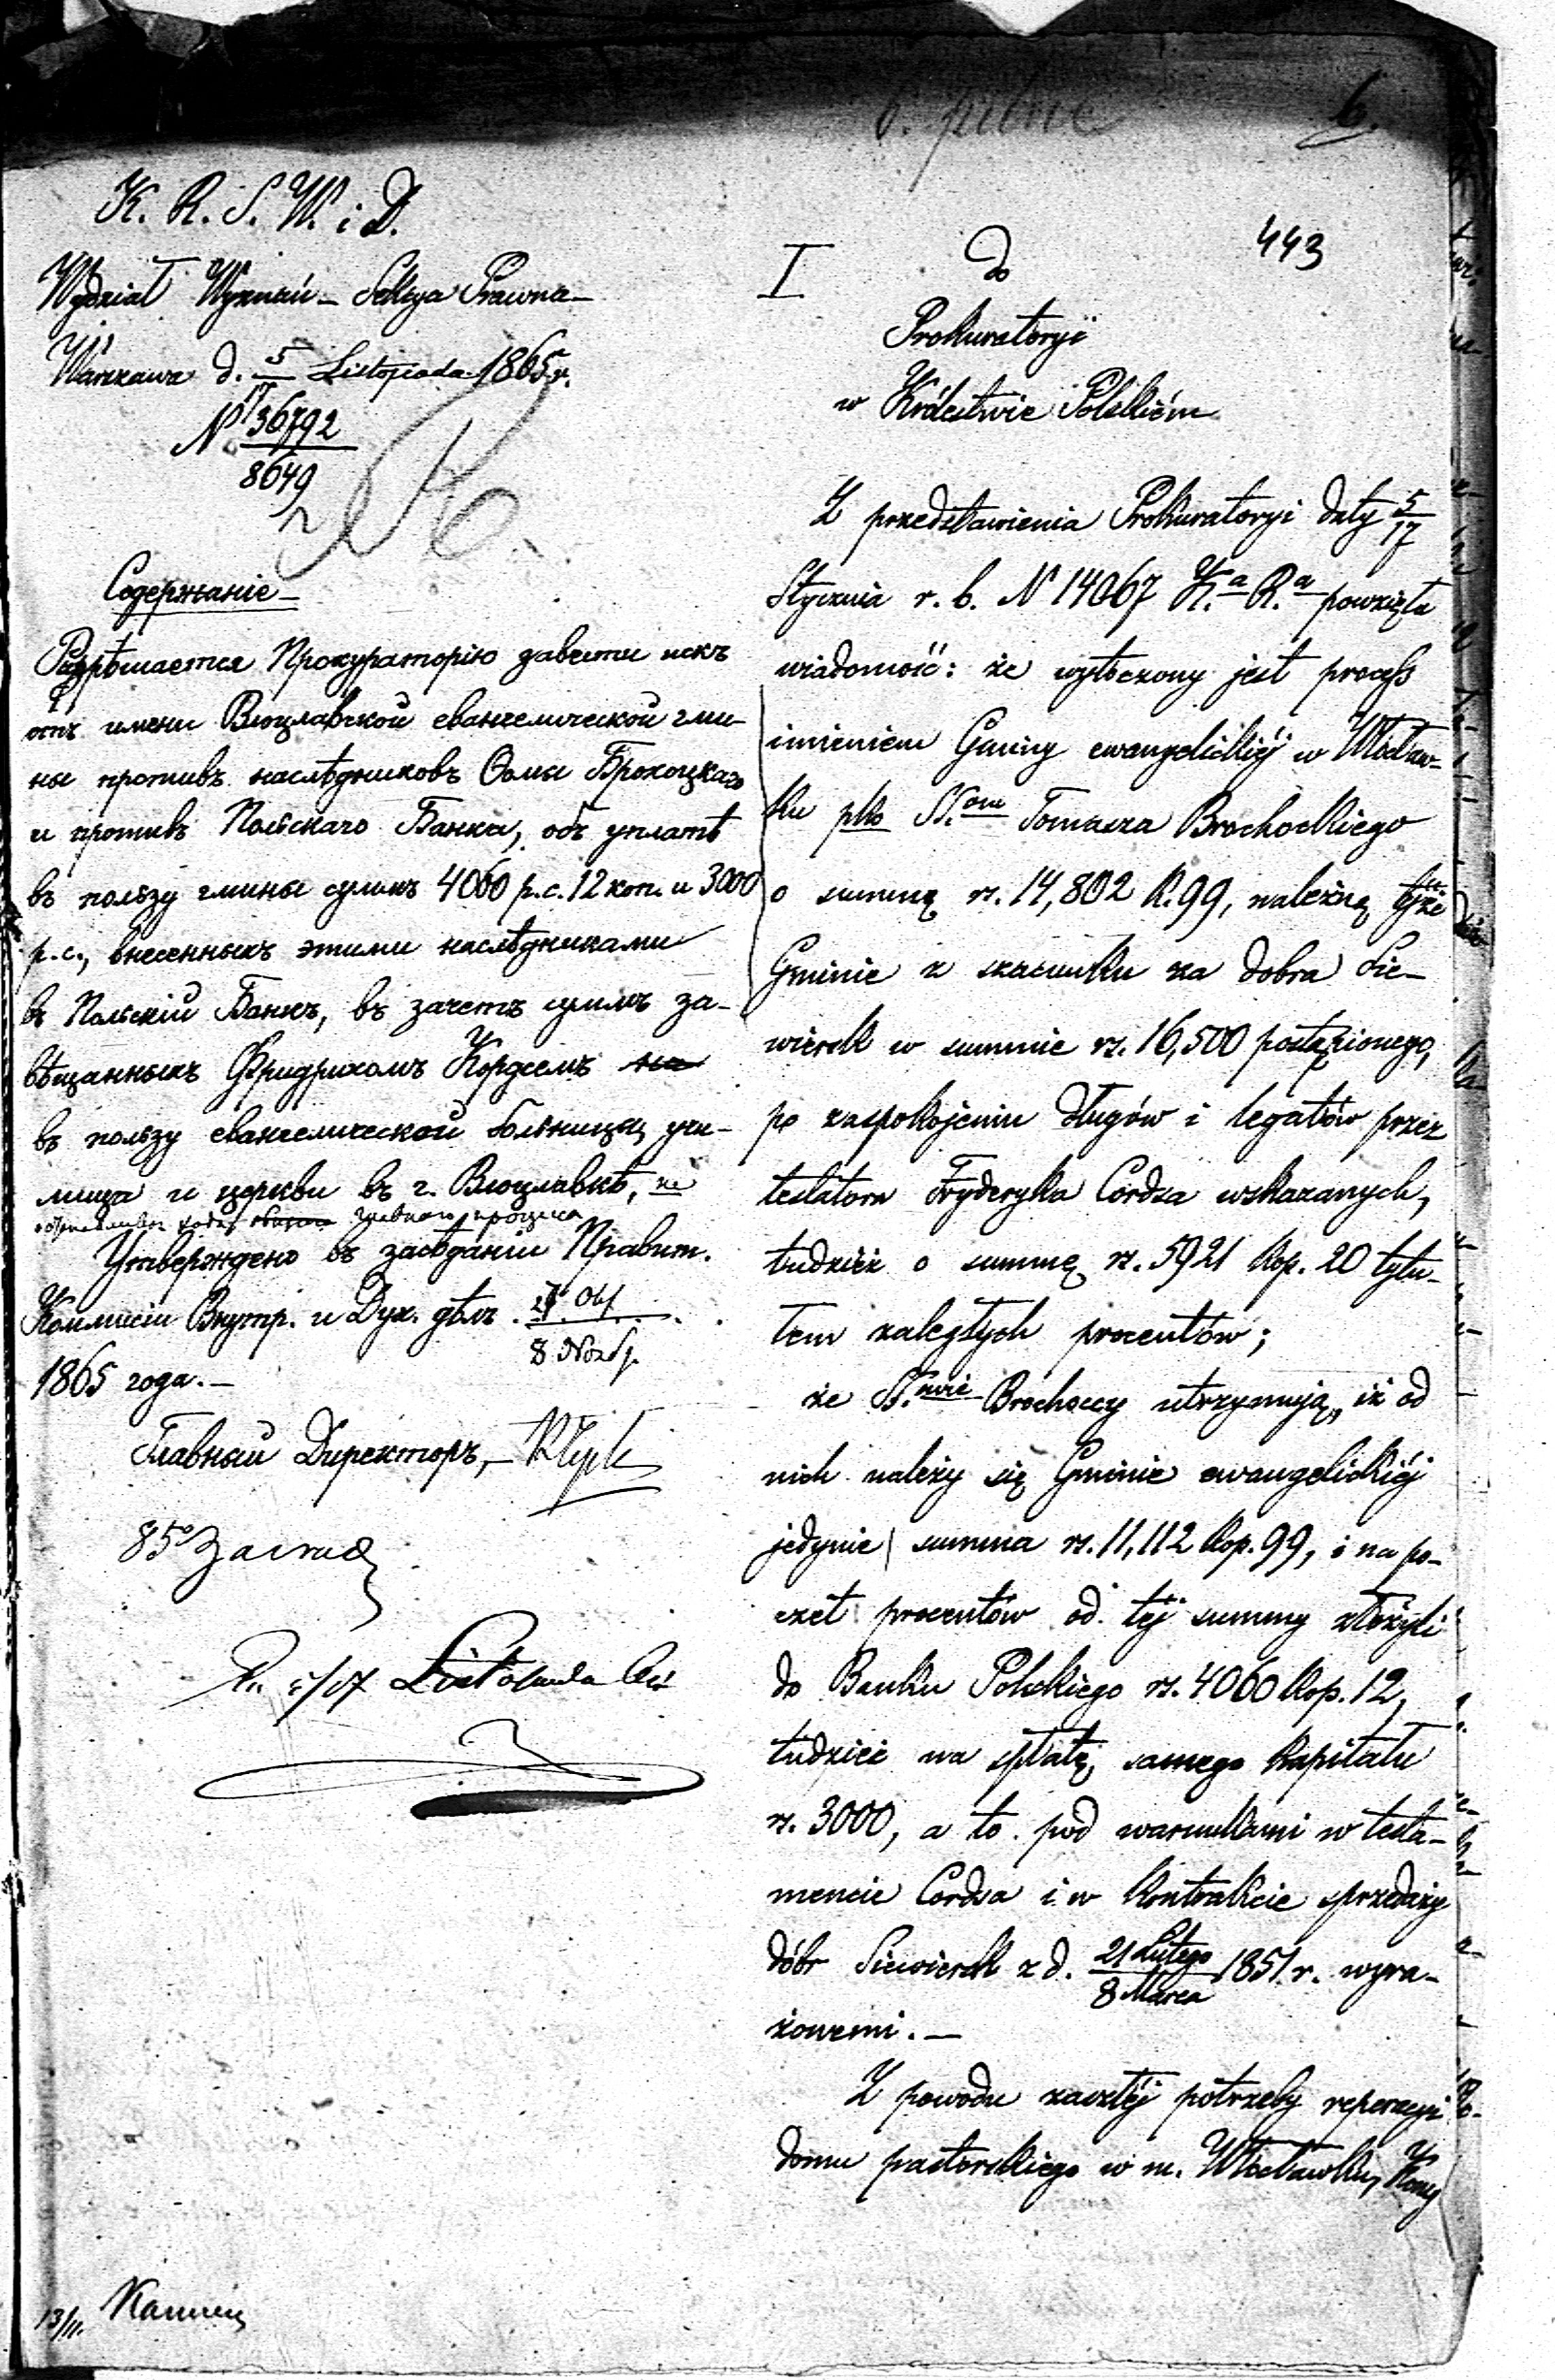 b. pilne
6.
443
K. R. S. W. i D.
Wydział Wyznań – Sekcya Prawna –
Warszawa d. 5/17 Listopada 1865 r.
N 36792
8649
Содержаніе –
Разрѣшается Прокураторію завести искъ
отъ имени Влоцлавской евангелической гми-
ны противъ наслѣдниковъ Ѳомы Брохоцкаго
и противъ Польскаго Банка, объ уплатѣ
въ пользу гмины суммъ 4060 р. с. 12 коп. и 3000
р. с., внесенныхъ этими наслѣдниками
въ Польскій Банкъ, въ зачетъ суммъ за-
вѣщанныхъ Фридрихомъ Кордсемъ на
въ пользу евангелической больницы, учи-
лища и церкви въ г. Влоцлавкѣ, не
хода главнаго процесса
Утверждено въ засѣданіи Правит.
Коммисіи Внутр. и Дух. дѣлъ 27 Окт.
8 Нояб.
1865 года. –
Главный Директоръ, –
D. 5/17 Listopada
13/11.
I
do
Prokuratoryi
w Królestwie Polskiém
Z przedstawienia Prokuratoryi daty 5/17
Stycznia r. b. N 14067 K.a R.a powzięła
wiadomość: że wytoczony jest process
imieniem Gminy ewangelickiéj w Włocław-
ku pko S.om Tomasza Brochockiego
o summę rs. 14,802 k. 99, należną tejże
Gminie z szacunku za dobra Sie-
wiersk w summie rs. 16,500 postąpionego,
po zaspokojeniu długów i legatów przez
testatora Fryderyka Cordsa wskazanych,
tudzież o summę rs. 5921 kop. 20 tytu-
łem zaległych procentów;
że S.wie Brochoccy utrzymują, iż od
nich należy się Gminie ewangelickiéj
jedynie summa rs. 11,112 kop. 99, i na po-
czet procentów od téj summy złożyli
do Banku Polskiego rs. 4060 kop. 12,
tudzież na spłatę samego kapitału
rs. 3000, a to pod warunkami w testa-
mencie Cordsa i w kontrakcie sprzedaży
dóbr Siewiersk z d. 21 Lutego/8 Marca 1851 r. wyra-
żonemi. –
Z powodu zaszłéj potrzeby reperacyi
domu pastorskiego w m. Włocławku,